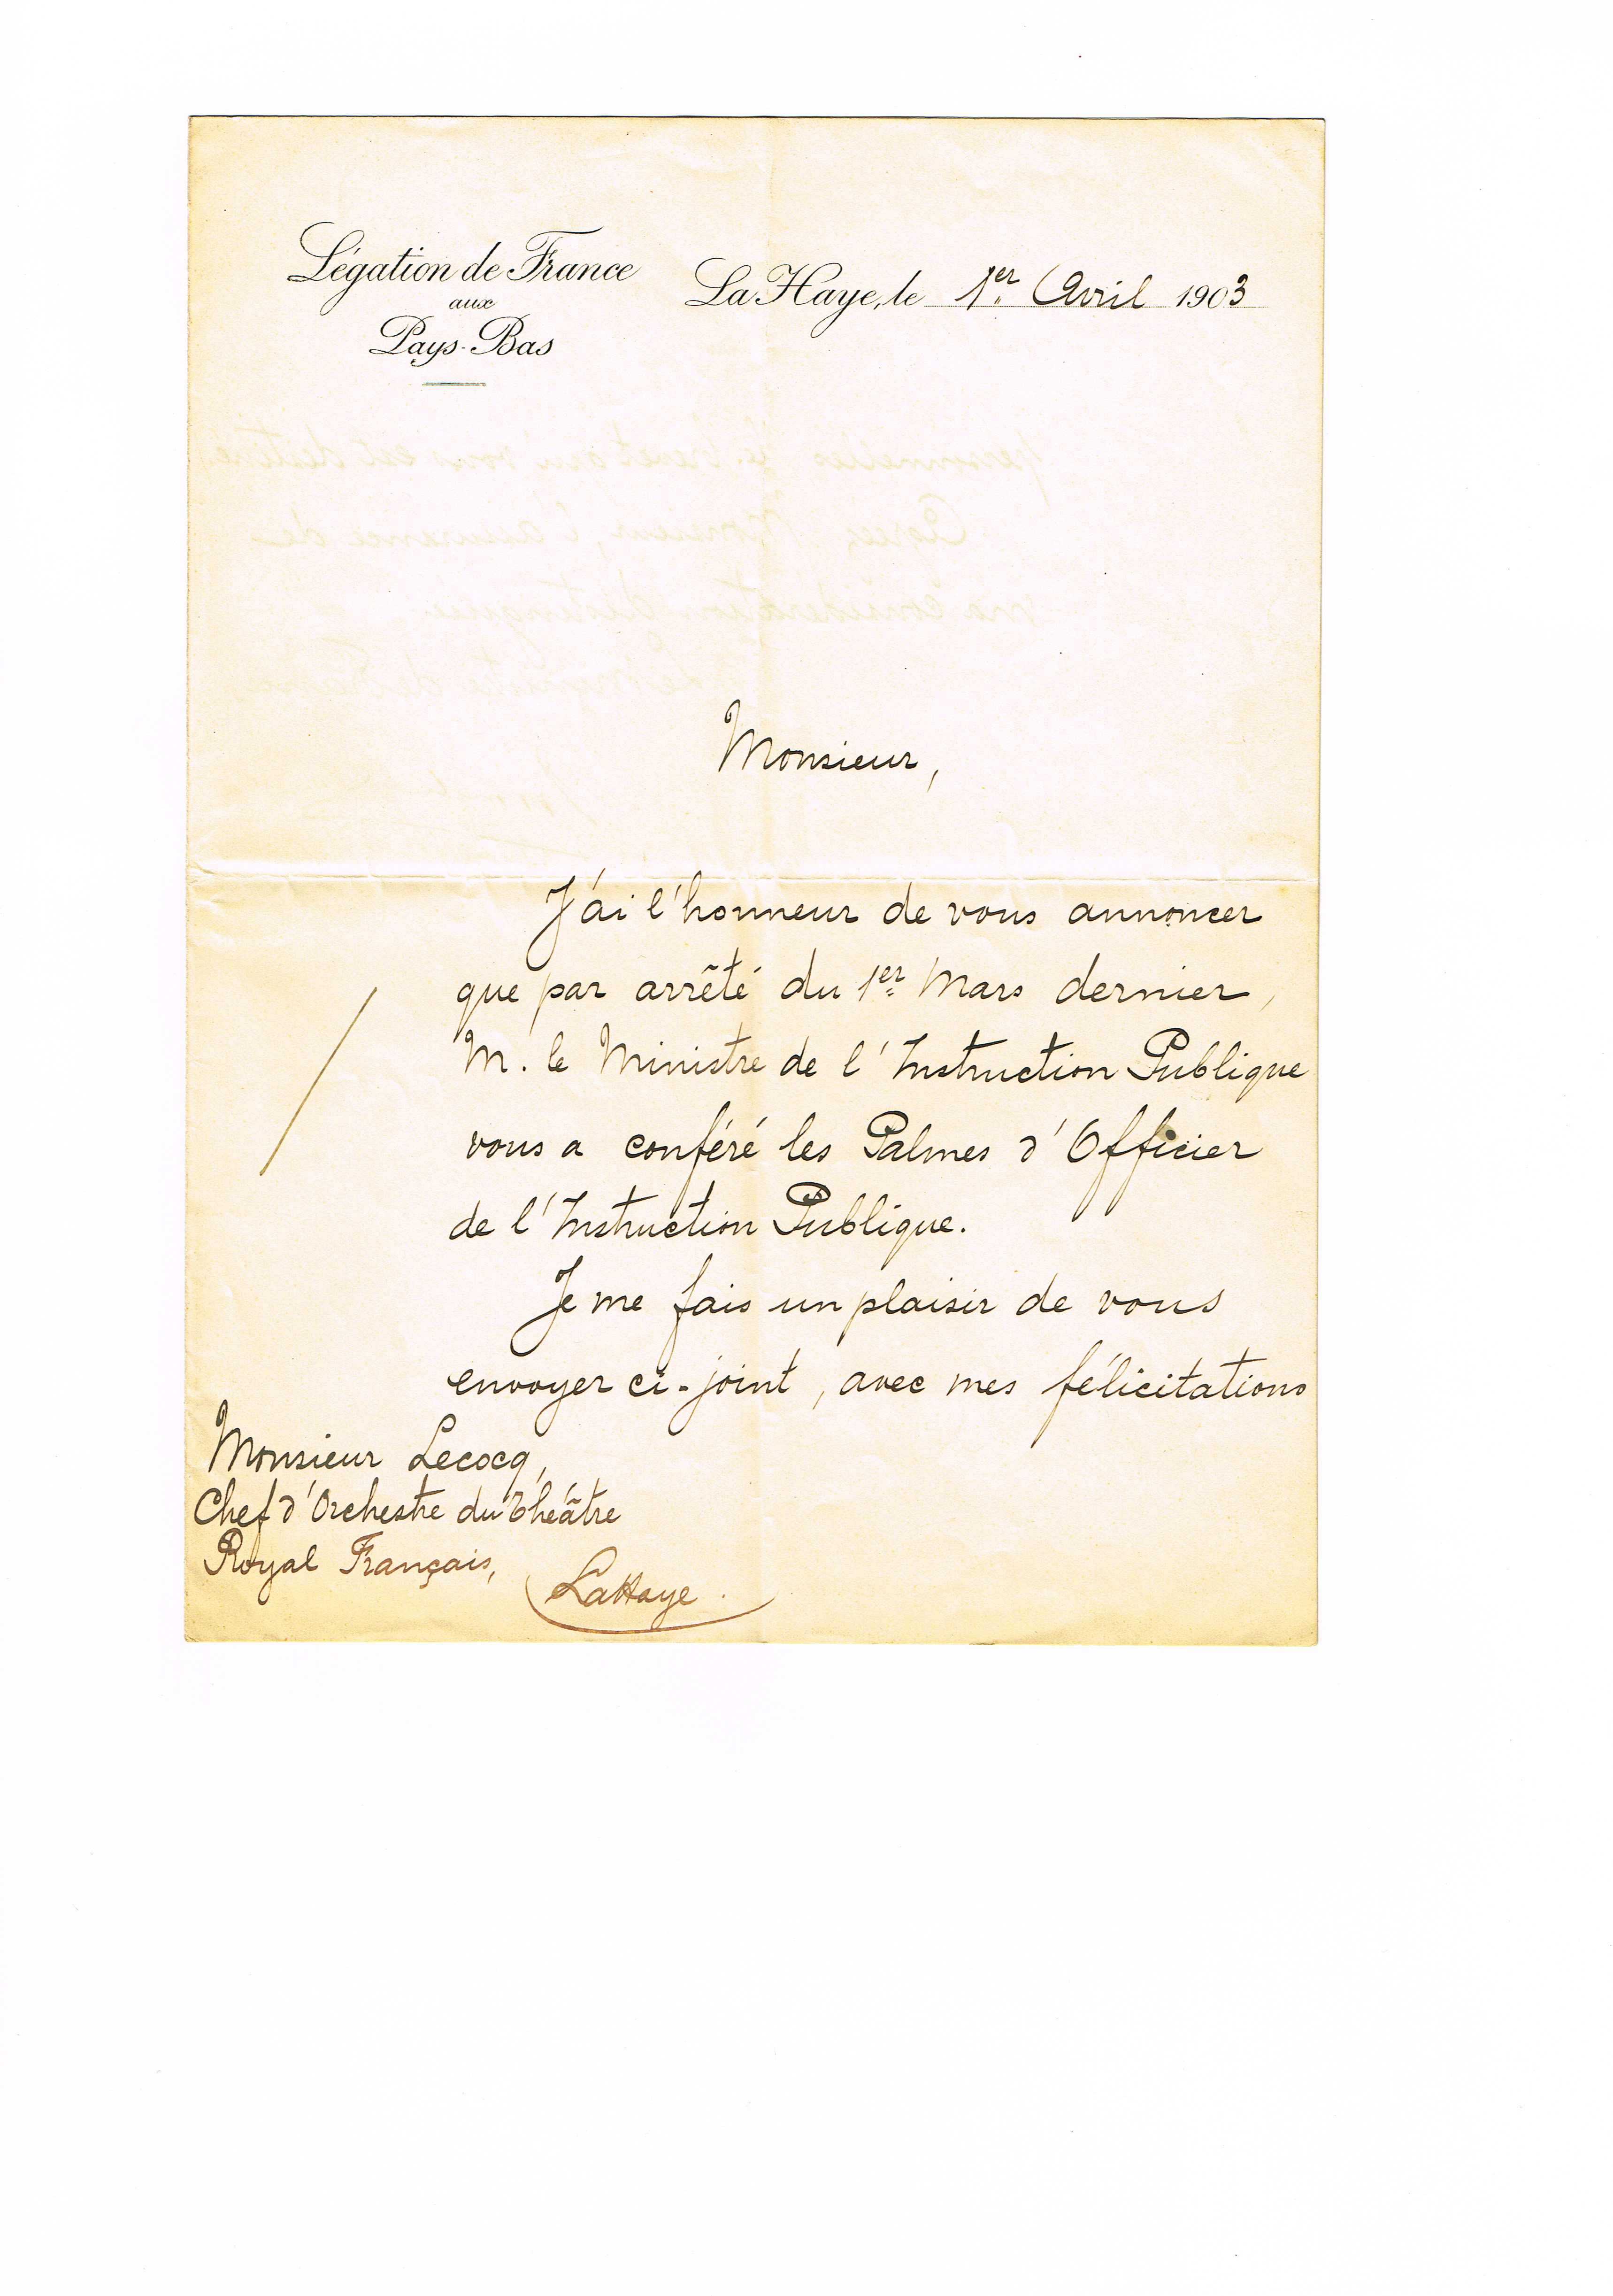 Légation de France
aux
Pays-Bas
La Haye, le 1er Avril 1903
Monsieur,
J'ai l'honneur de vous annoncer
que par arrêté du 1er Mars dernier,
M. le Ministre de l'Instruction Publique
vous a conféré les Palmes d'Officier
de l'Instruction Publique.
Je me fais un plaisir de vous
envoyer ci-joint, avec mes félicitations
Monsieur Lecocq,
Chef d'Orchestre du Théâtre
Royal Français,
La Haye.